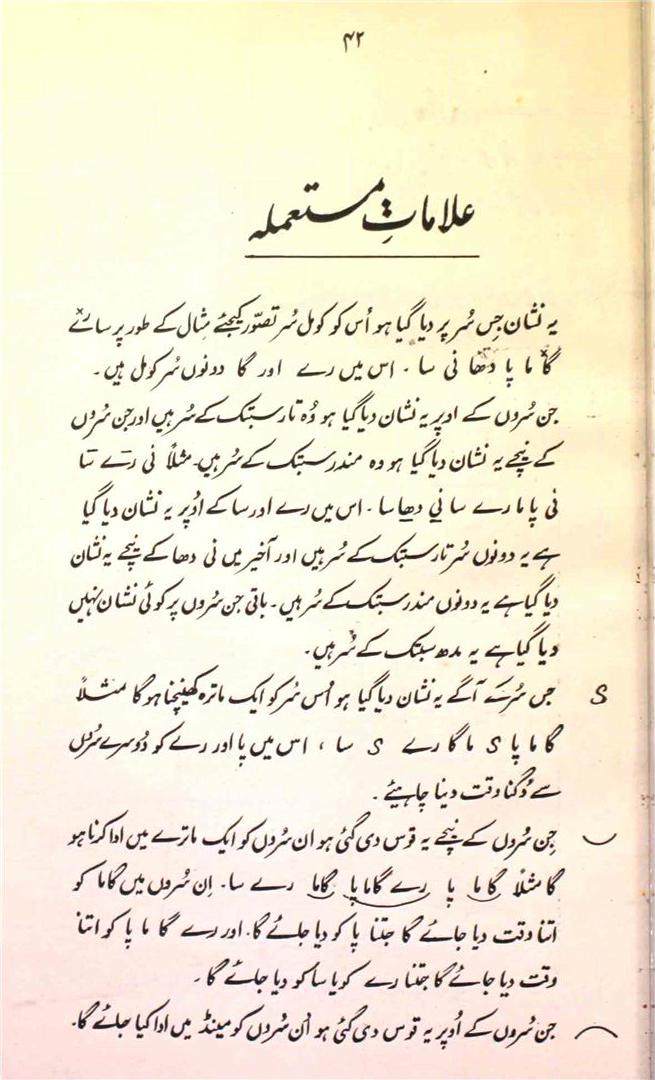 ۴۲
علاماتِ مستعملہ
یہ نشان جِس سُر پر دیا گیا ہو اُس کو کومل سُر تصوّر کیجئے مِثال کے طور پر سا رے
گا ما پا دھا نی سا ۔ اس میں رے اور گا دونوں سُر کومل ہیں۔
جن سُروں کے اوپر یہ نشان دیا گیا ہو وُہ تار سبتک کے سُر ہیں اور جن سُروں
کے نیچے یہ نشان دیا گیا ہو وہ مندر سبتک کے سُر ہیں۔ مثلاً نی رے سا
نی پا ما رے سا نی دھا سا ۔ اس میں رے اور سا کے اُوپر یہ نشان دیا گیا
ہے یہ دونوں سُر تار سبتک کے سُر ہیں اور آخیر میں نی دھا کے نیچے یہ نشان
دیا گیا ہے یہ دونوں مندر سبتک کے سُر ہیں۔ باقی جن سُروں پر کوئی نشان نہیں
دیا گیا ہے یہ مدھ سبتک کے سُر ہیں۔
S جس سُر کے آگے یہ نشان دیا گیا ہو اُس سُر کو ایک ماترہ کھینچنا ہوگا مثلاً
گا ما پا S ما گا رے S سا ، اس میں پا اور رے کو دُوسرے سُروں
سے دُگنا وقت دینا چاہیئے ۔
جِن سُروں کے نیچے یہ قوس دی گئی ہو ان سُروں کو ایک ماترے میں ادا کرنا ہو
گا مثلاً گا ما پا رے گا ما پا گا ما رے سا۔ اِن سُروں میں گا ما کو
اتنا وقت دیا جائے گا جتنا پا کو دیا جائے گا۔ اور رے گا ما پا کو اتنا
وقت دیا جائے گا جتنا رے کو یا سا کو دیا جائے گا ۔
جن سُروں کے اُوپر یہ قوس دی گئی ہو اُن سُروں کو مینڈ میں ادا کیا جائے گا۔